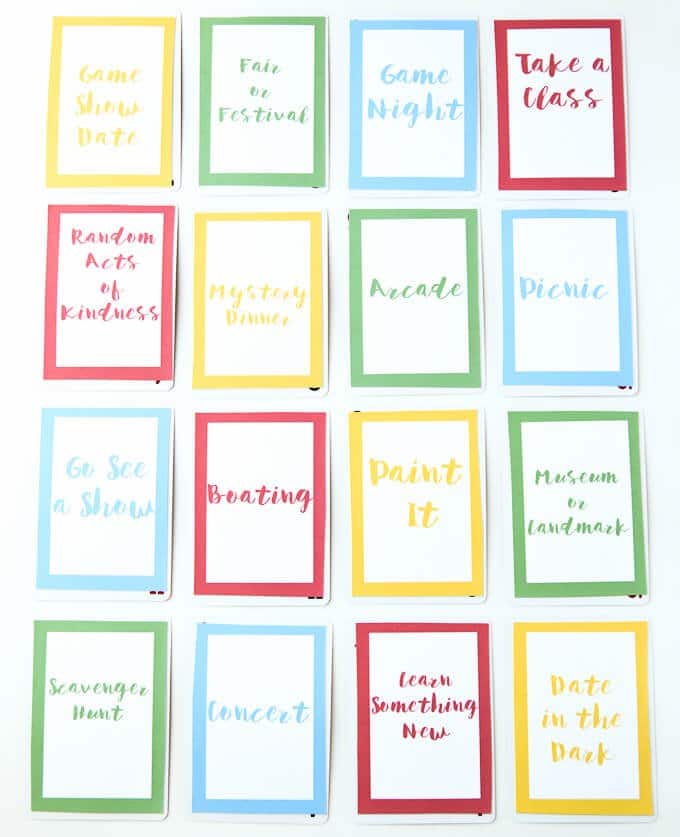 Game
Show
Date
Fair
or
Festival
Game
Night
Take a
Class
Random
Acts
of
Kindness
Mystery
Dinner
Arcade
Picnic
Go See
a Show
Boating
Paint
It
Museum
or
Landmark
Scavenger
Hunt
Concert
Learn
Something
New
Date
in the
Dark